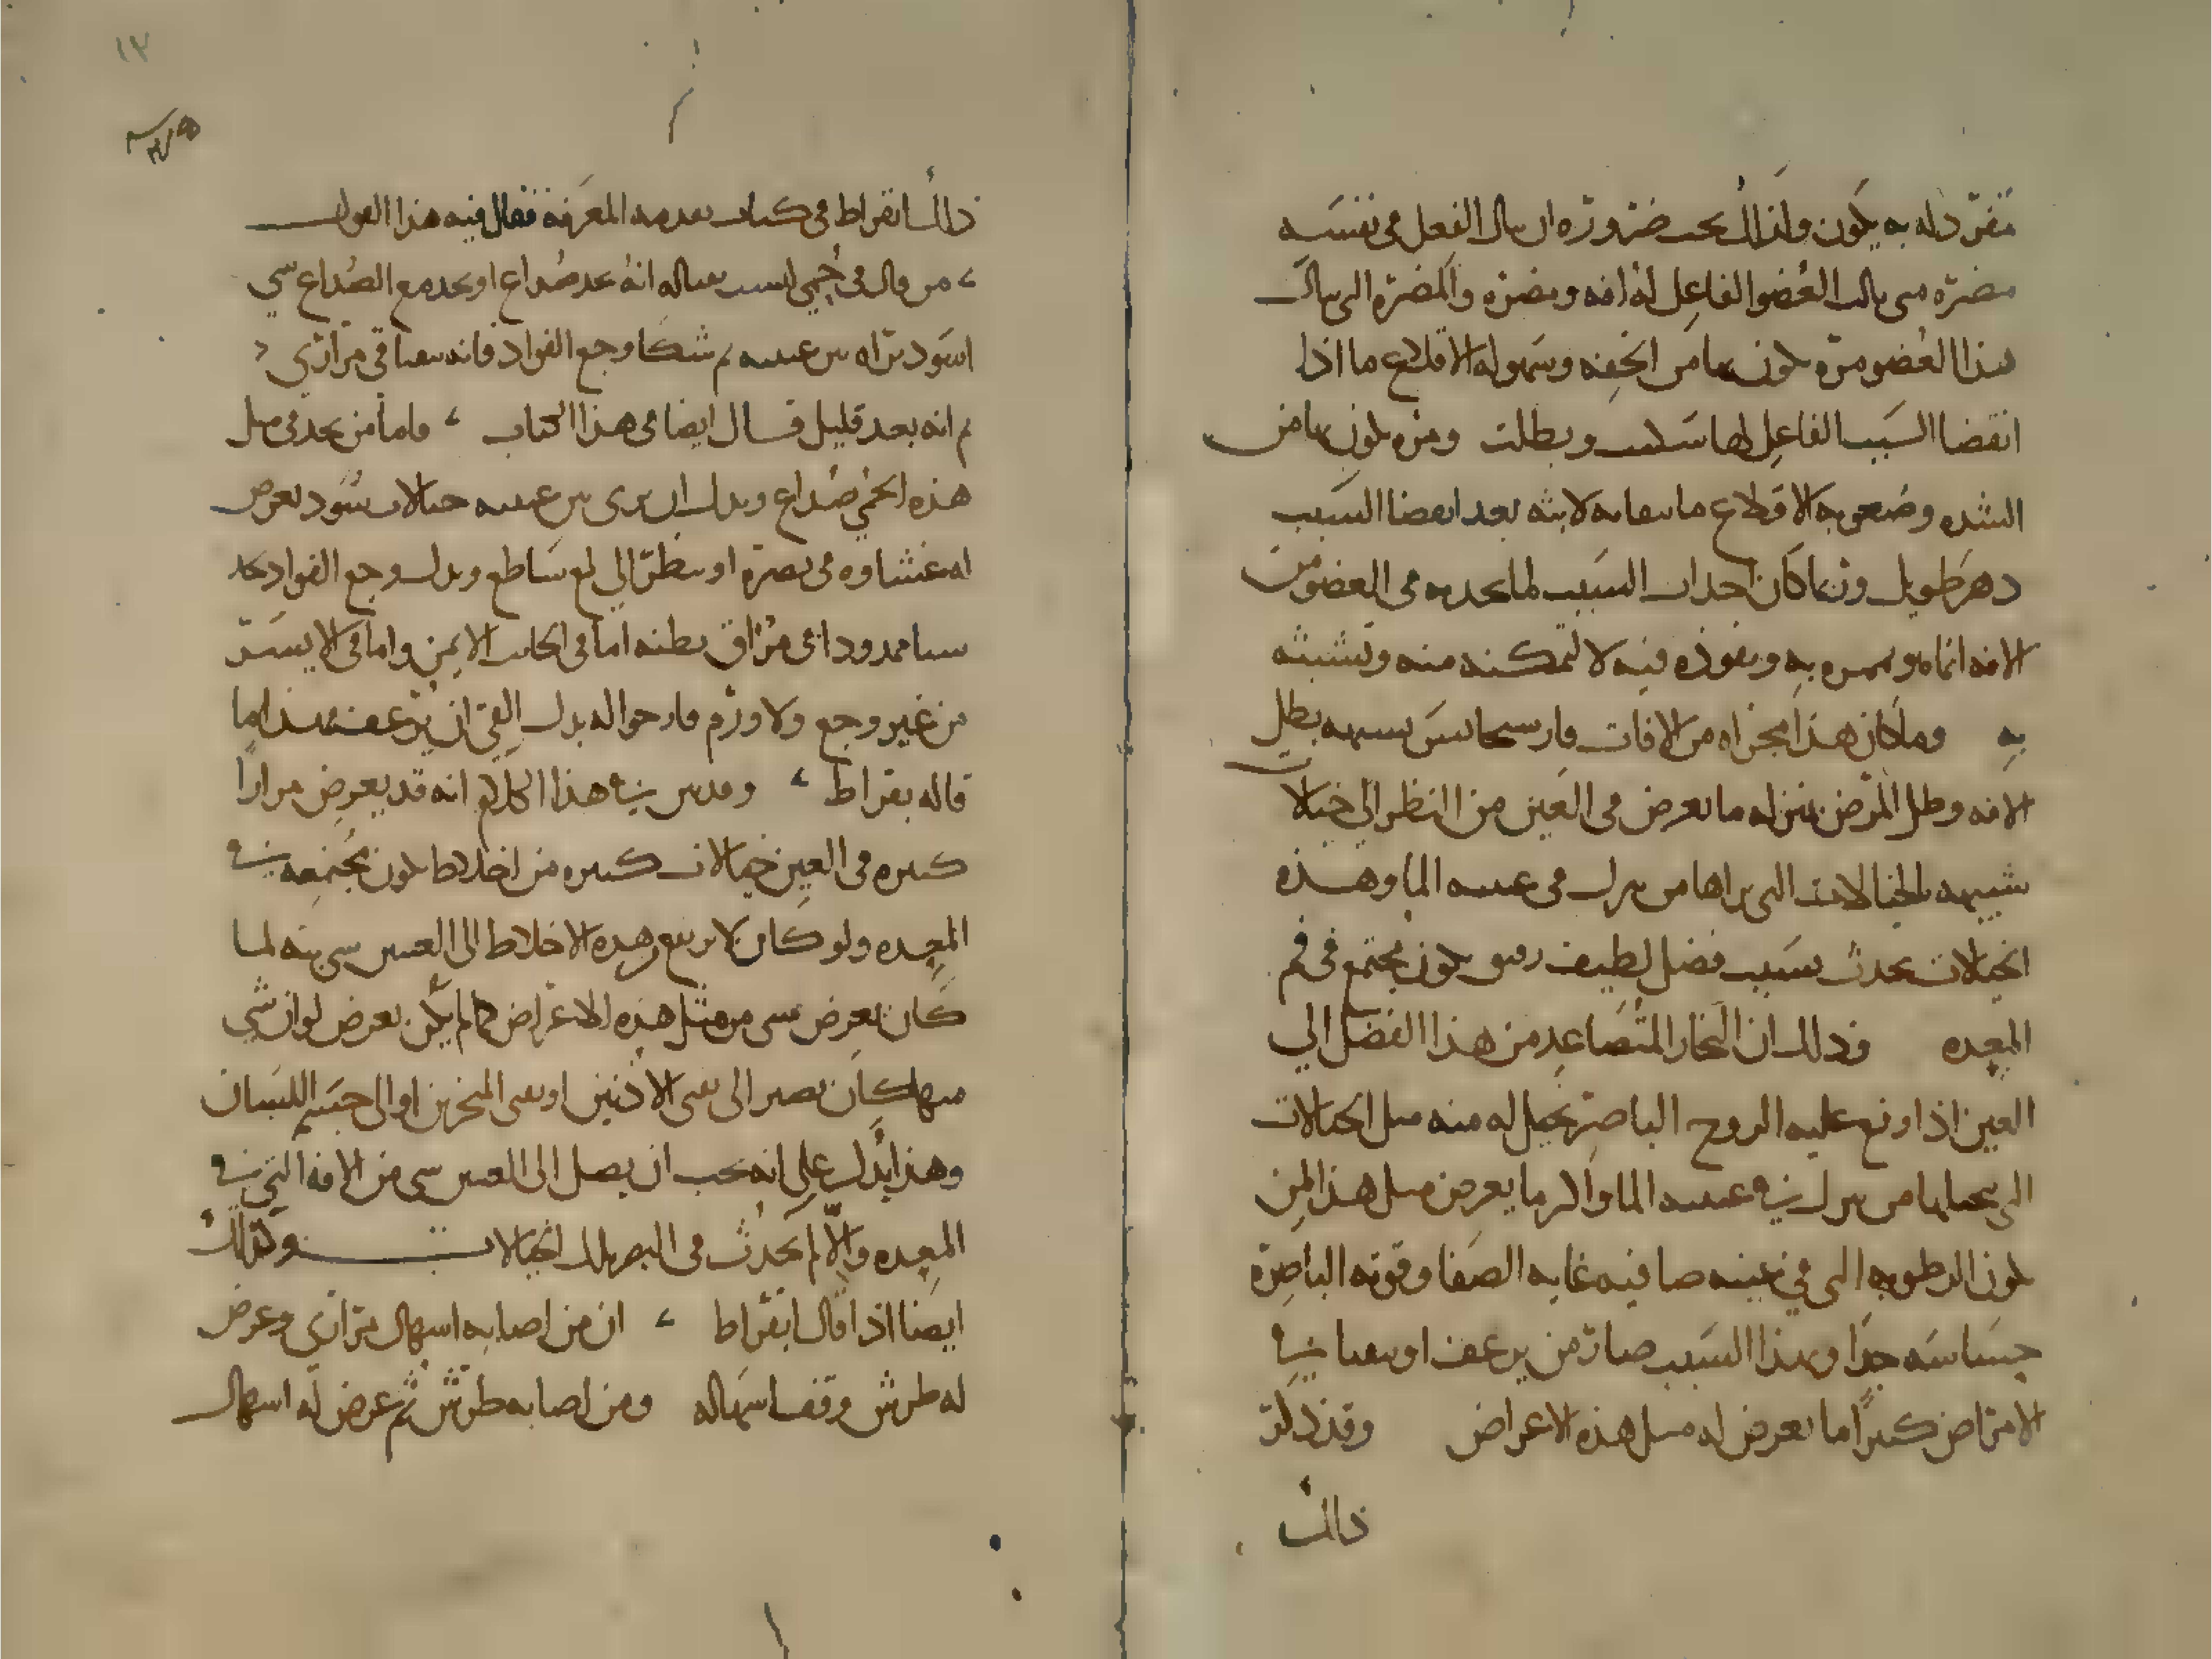 مفردله به يكون ولذلك يجب ضرورة ان ينال الفعل في نفسه
مضرة متى نالت العضو الفاعل له افه ومضرة والمضرة التي تنال
هذا العضو مرة يكون بها من الخفه وسهولة الاقلاع ما اذا
انقضا السبب الفاعل لها سكنت وبطلت ومرة يكون بها من
الشدة وصعوبة الاقلاع ما بقا به لابثه بعد انقضا السبب
دهر طويل وربما كان احداث السبب لما يحدثه في العضو من
الافه انما هو بمره به ونفوذه فيه لا لتمكنه منه وتشبثه
به وما كان هذا مجراه من الافات فان سحا نس بسببه بطل
الافه وظل المرض بمنزلة ما يعرض في العين من النظر الي خيالا
شبيهه بالخيالات التي يراها من نزل في عينيه الما وهذه
الخيالات تحدث بسبب فضل لطيف رقيق يكون مجتمع في فم
المعده وذلك ان البخار المتصاعد من هذا الفضل الي
العين اذا وقع عليه الروح الباصر تخيل له منه مثل الخيالات
التي يتخيلها من نزل في عينيه الما واكثر ما يعرض مثل هذا لمن
يكون الرطوبه التي في عينيه صافيه غاية الصفا وقوته الباصرة
حساسه جدا وبهذا السبب صار من يرعف او يتقيا في
الامراض كثيرا ما يعرض له مثل هذه الاعراض وقد ذكر
ذلك
١٣
ذلك ابقراط في كتاب تقدمة المعرفة فقال فيه هذا القول
من قال في حمي ليست بقتاله انه يجد صداع او يجد مع الصداع شي
اسود تراه بين عينيه ثم شكا وجع الفواد فانه سيتقيا قي مراري
ثم انه بعد قليل قال ايضا في هذا الكتاب واما من يجد في مثل
هذه الحمي صداع وبدل ان يرى بين عينيه خيالات سود تعرض
له غشاوه في بصره او ينظر الي لمع ساطع وبدل وجع الفواد يجد
شيا ممدودا في مراق بطنه اما في الجانب الايمن واما في الايسر
من غير وجع ولا ورم فارجوا له بدل القي ان يرعف فهذا ما
قاله بقراط وقد بين في هذا الكلام انه قد يعرض مرارا
كثيره في العين خيالات كثيره من اخلاط يكون مجتمعه في
المعده ولو كان لا يرتفع هذه الاخلاط الى العين شي بته لما
كان يعرض شي من مثل هذه الاعراض كما لم يكن يعرض لو ان شي
منها كان يصير الى ثقبي الاذنين او ثقبي المنخرين او الى جسم اللسان
وهذا يدل علي انه يجب ان يصل الى العين شي من الافه التي في
المعده والا لم يحدث في البصر تلك الخيالات وكذلك
ايضا اذا قال ابقراط ان من اصابه اسهال مراري وعرض
له طرش وقف اسهاله ومن اصابه طرش ثم عرض له اسهال